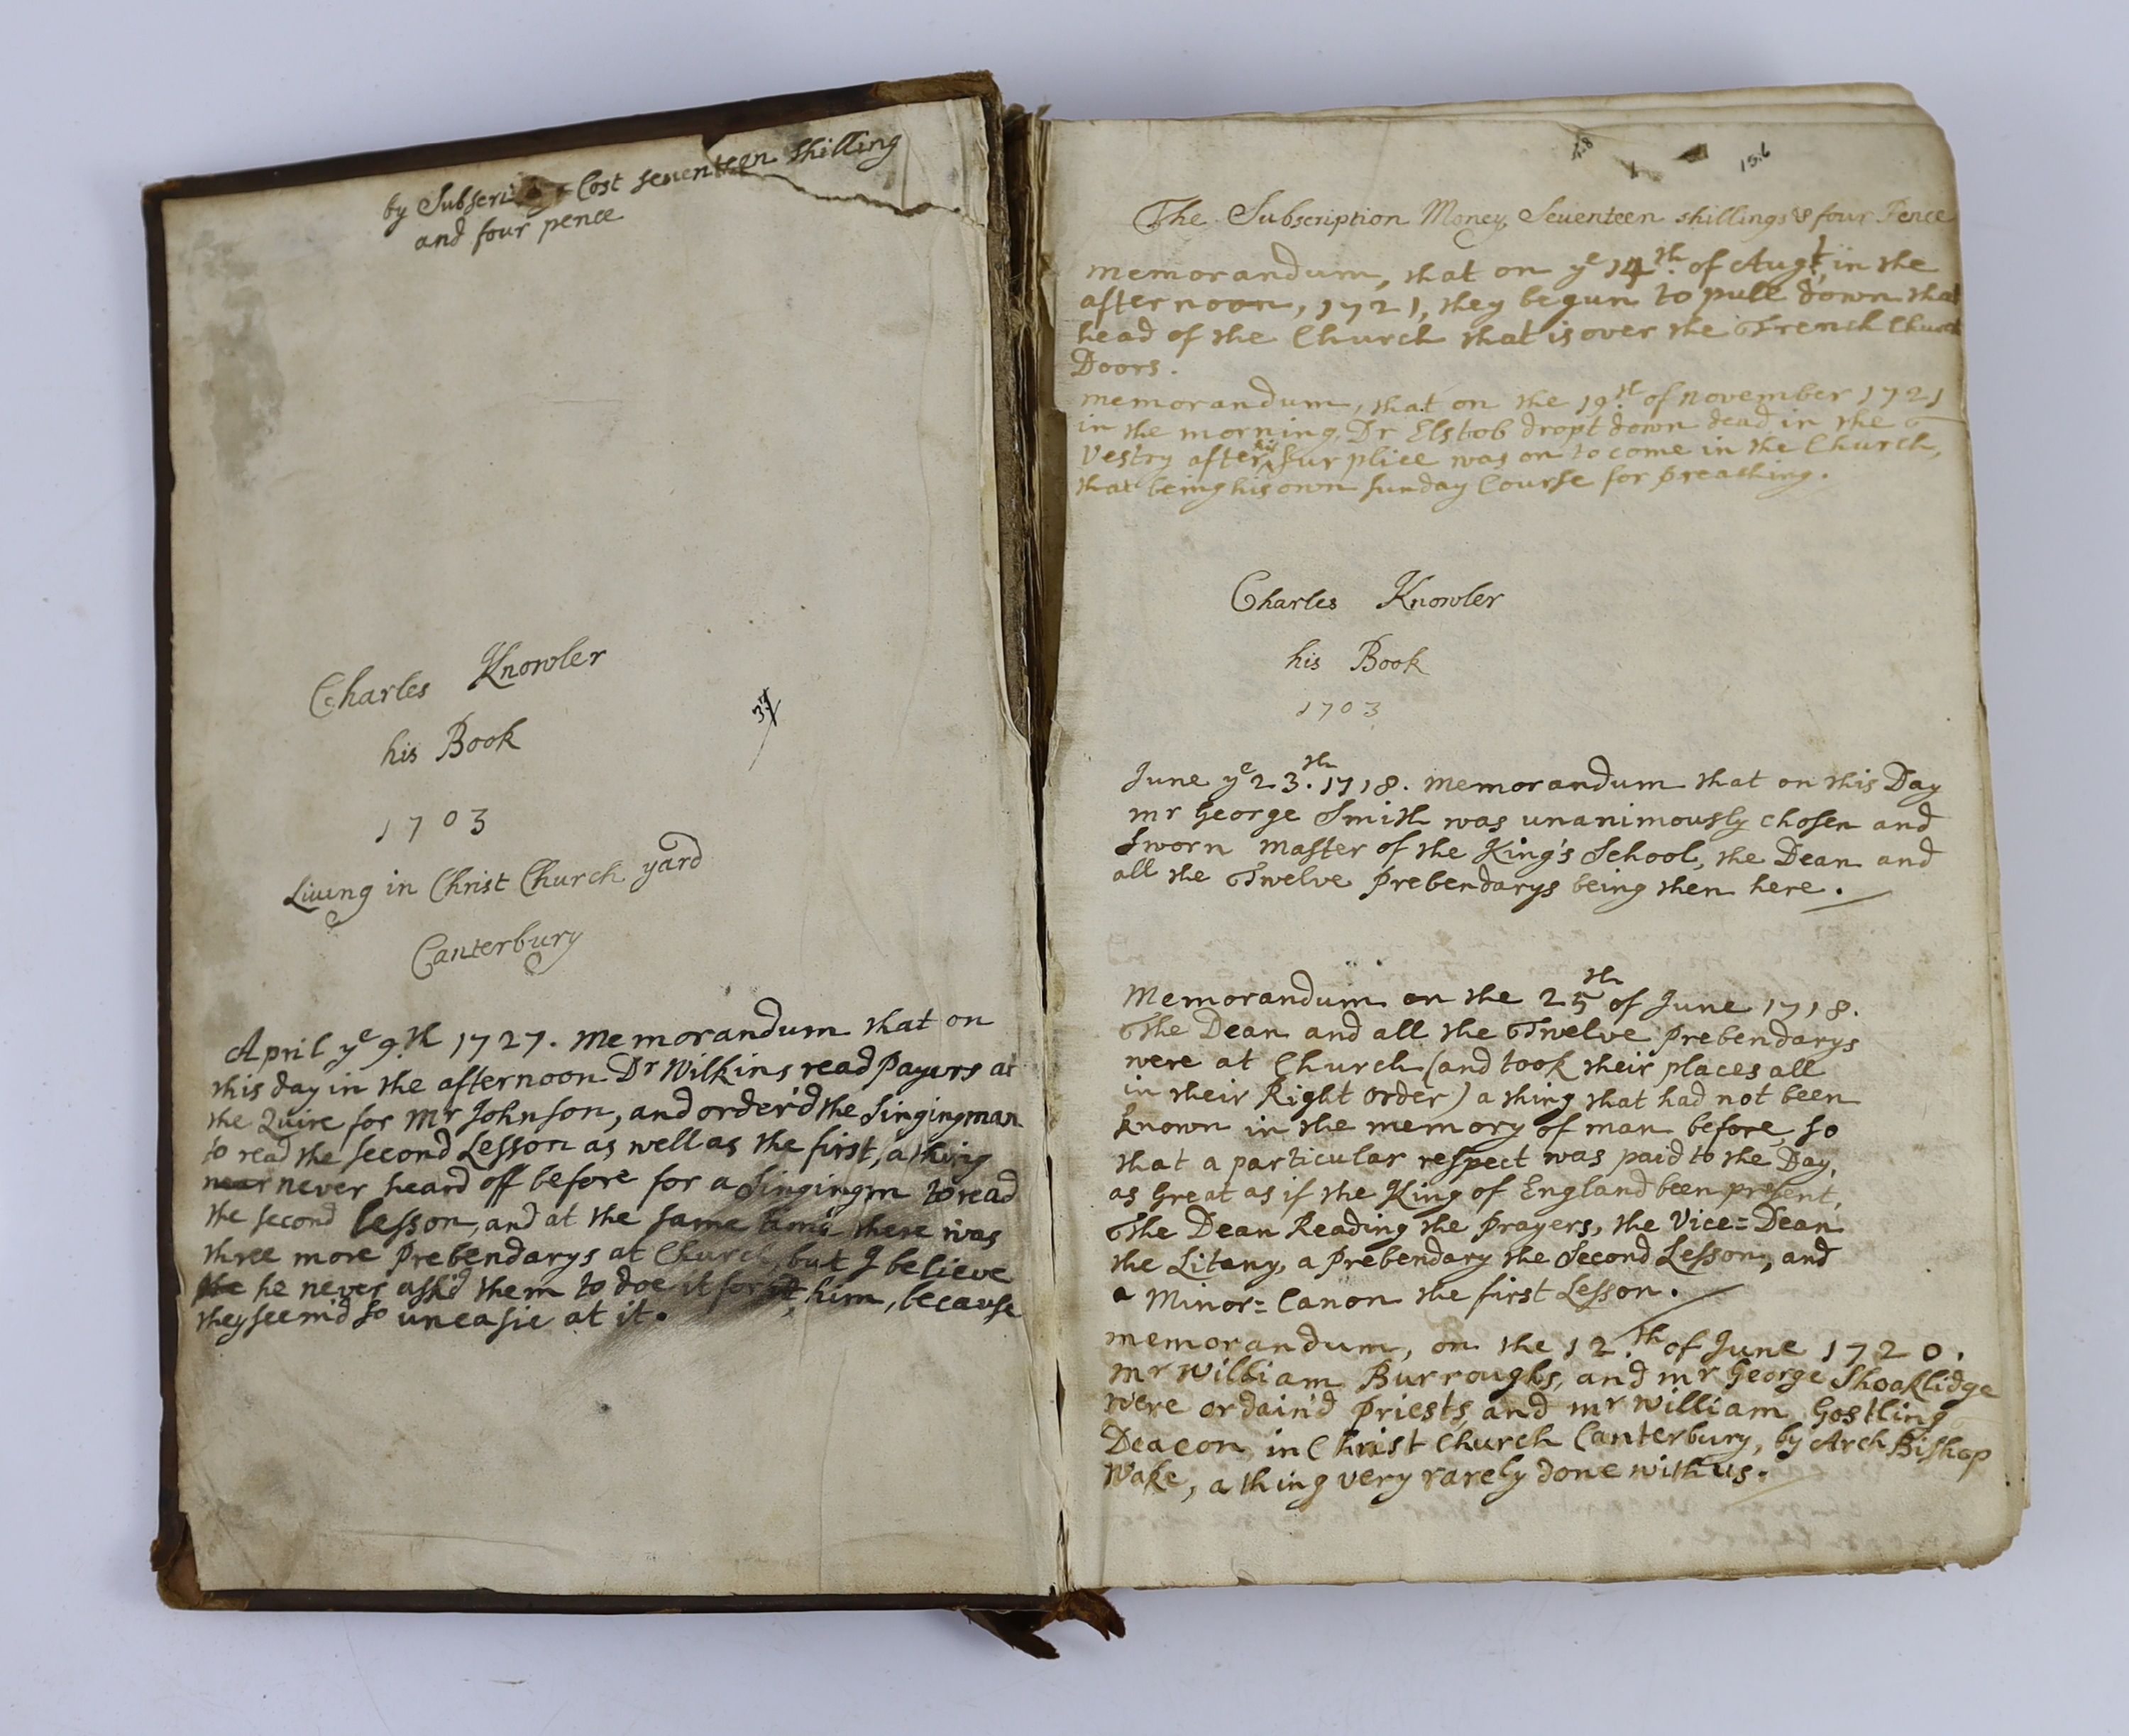 by Subscri Cost seuenteen shilling
and four pence
Charles Knowler
his Book
1703
Liuing in Christ Church yard
Canterbury
37
April yᵉ 9.th 1727. Memorandum that on
this day in the afternoon Dr Wilkins read Payers at
the Quire for Mr Johnson, and order'd the Singingman
to read the second Lesson as well as the first, a thing
never heard off before for a Singingm to read
the second Lesson, and at the same time there was
three more Prebendarys at Church, but I believe
he never ask'd them to doe it for him, because
they seem'd so uneasie at it.
15:6
The Subscription Money Seuenteen shillings & four Pence
memorandum, that on yᵉ 14th. of Augt. in the
afternoon, 1721, they begun to pull down that
head of the Church that is over the French Church
Doors.
memorandum, that on the 19th. of November 1721
in the morning, Dr Elstob dropt down dead in the
Vestry after his surplice was on to come in the Church,
that being his own sunday Course for preaching.
Charles Knowler
his Book
1703
June yᵉ 23.th 1718. Memorandum that on this Day
mr George Smith was unanimously chosen and
Sworn Master of the King's School, the Dean and
all the Twelve Prebendarys being then here.
Memorandum on the 25th of June 1718.
The Dean and all the Twelve Prebendarys
were at Church (and took their places all
in their Right Order) a thing that had not been
known in the memory of man before, so
that a particular respect was paid to the Day,
as Great as if the King of England been present,
The Dean Reading the Prayers, the Vice=Dean
the Litany, a Prebendary the Second Lesson, and
a Minor=Canon the first Lesson.
memorandum, on the 12.th of June 1720.
mr William Burroughs, and mr George Shoaklidge
were ordain'd Priests, and mr William Gostling
Deacon, in Christ Church Canterbury, by Arch Bishop
Wake, a thing very rarely done with us.